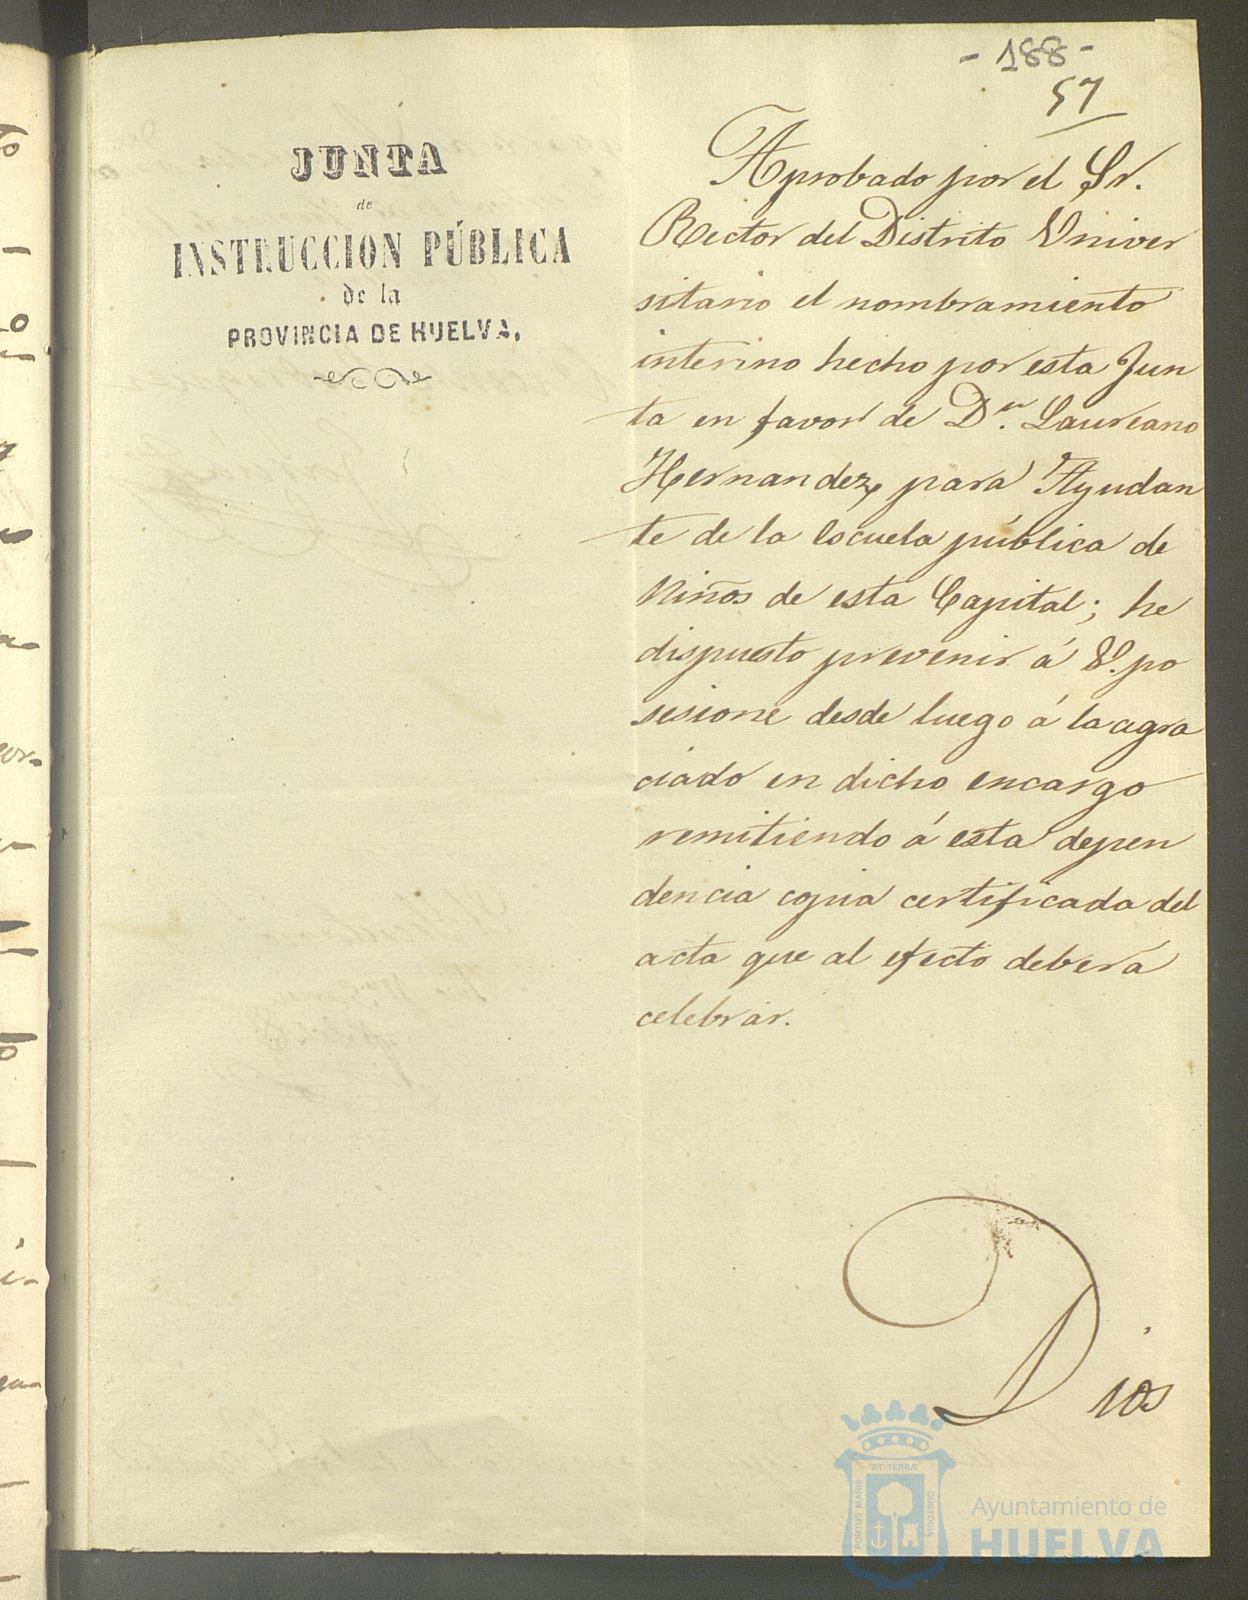 - 188 -
57
JUNTA
de
INSTRUCCION PÚBLICA
de la
PROVINCIA DE HUELVA.
Aprobado por el Sr.
Rector del Distrito Univer
sitario el nombramiento
interino hecho por esta Jun
ta en favor de Dn. Laureano
Hernandez, para Ayudan
te de la escuela pública de
Niños de esta Capital; he
dispuesto prevenir á V. po
sesione desde luego á la agra
ciado en dicho encargo
remitiendo á esta depen
dencia copia certificada del
acta que al efecto deberá
celebrar.
Dios
ET TERRÆ
PORTUS MARIS
CUSTODIA
Ayuntamiento de
HUELVA